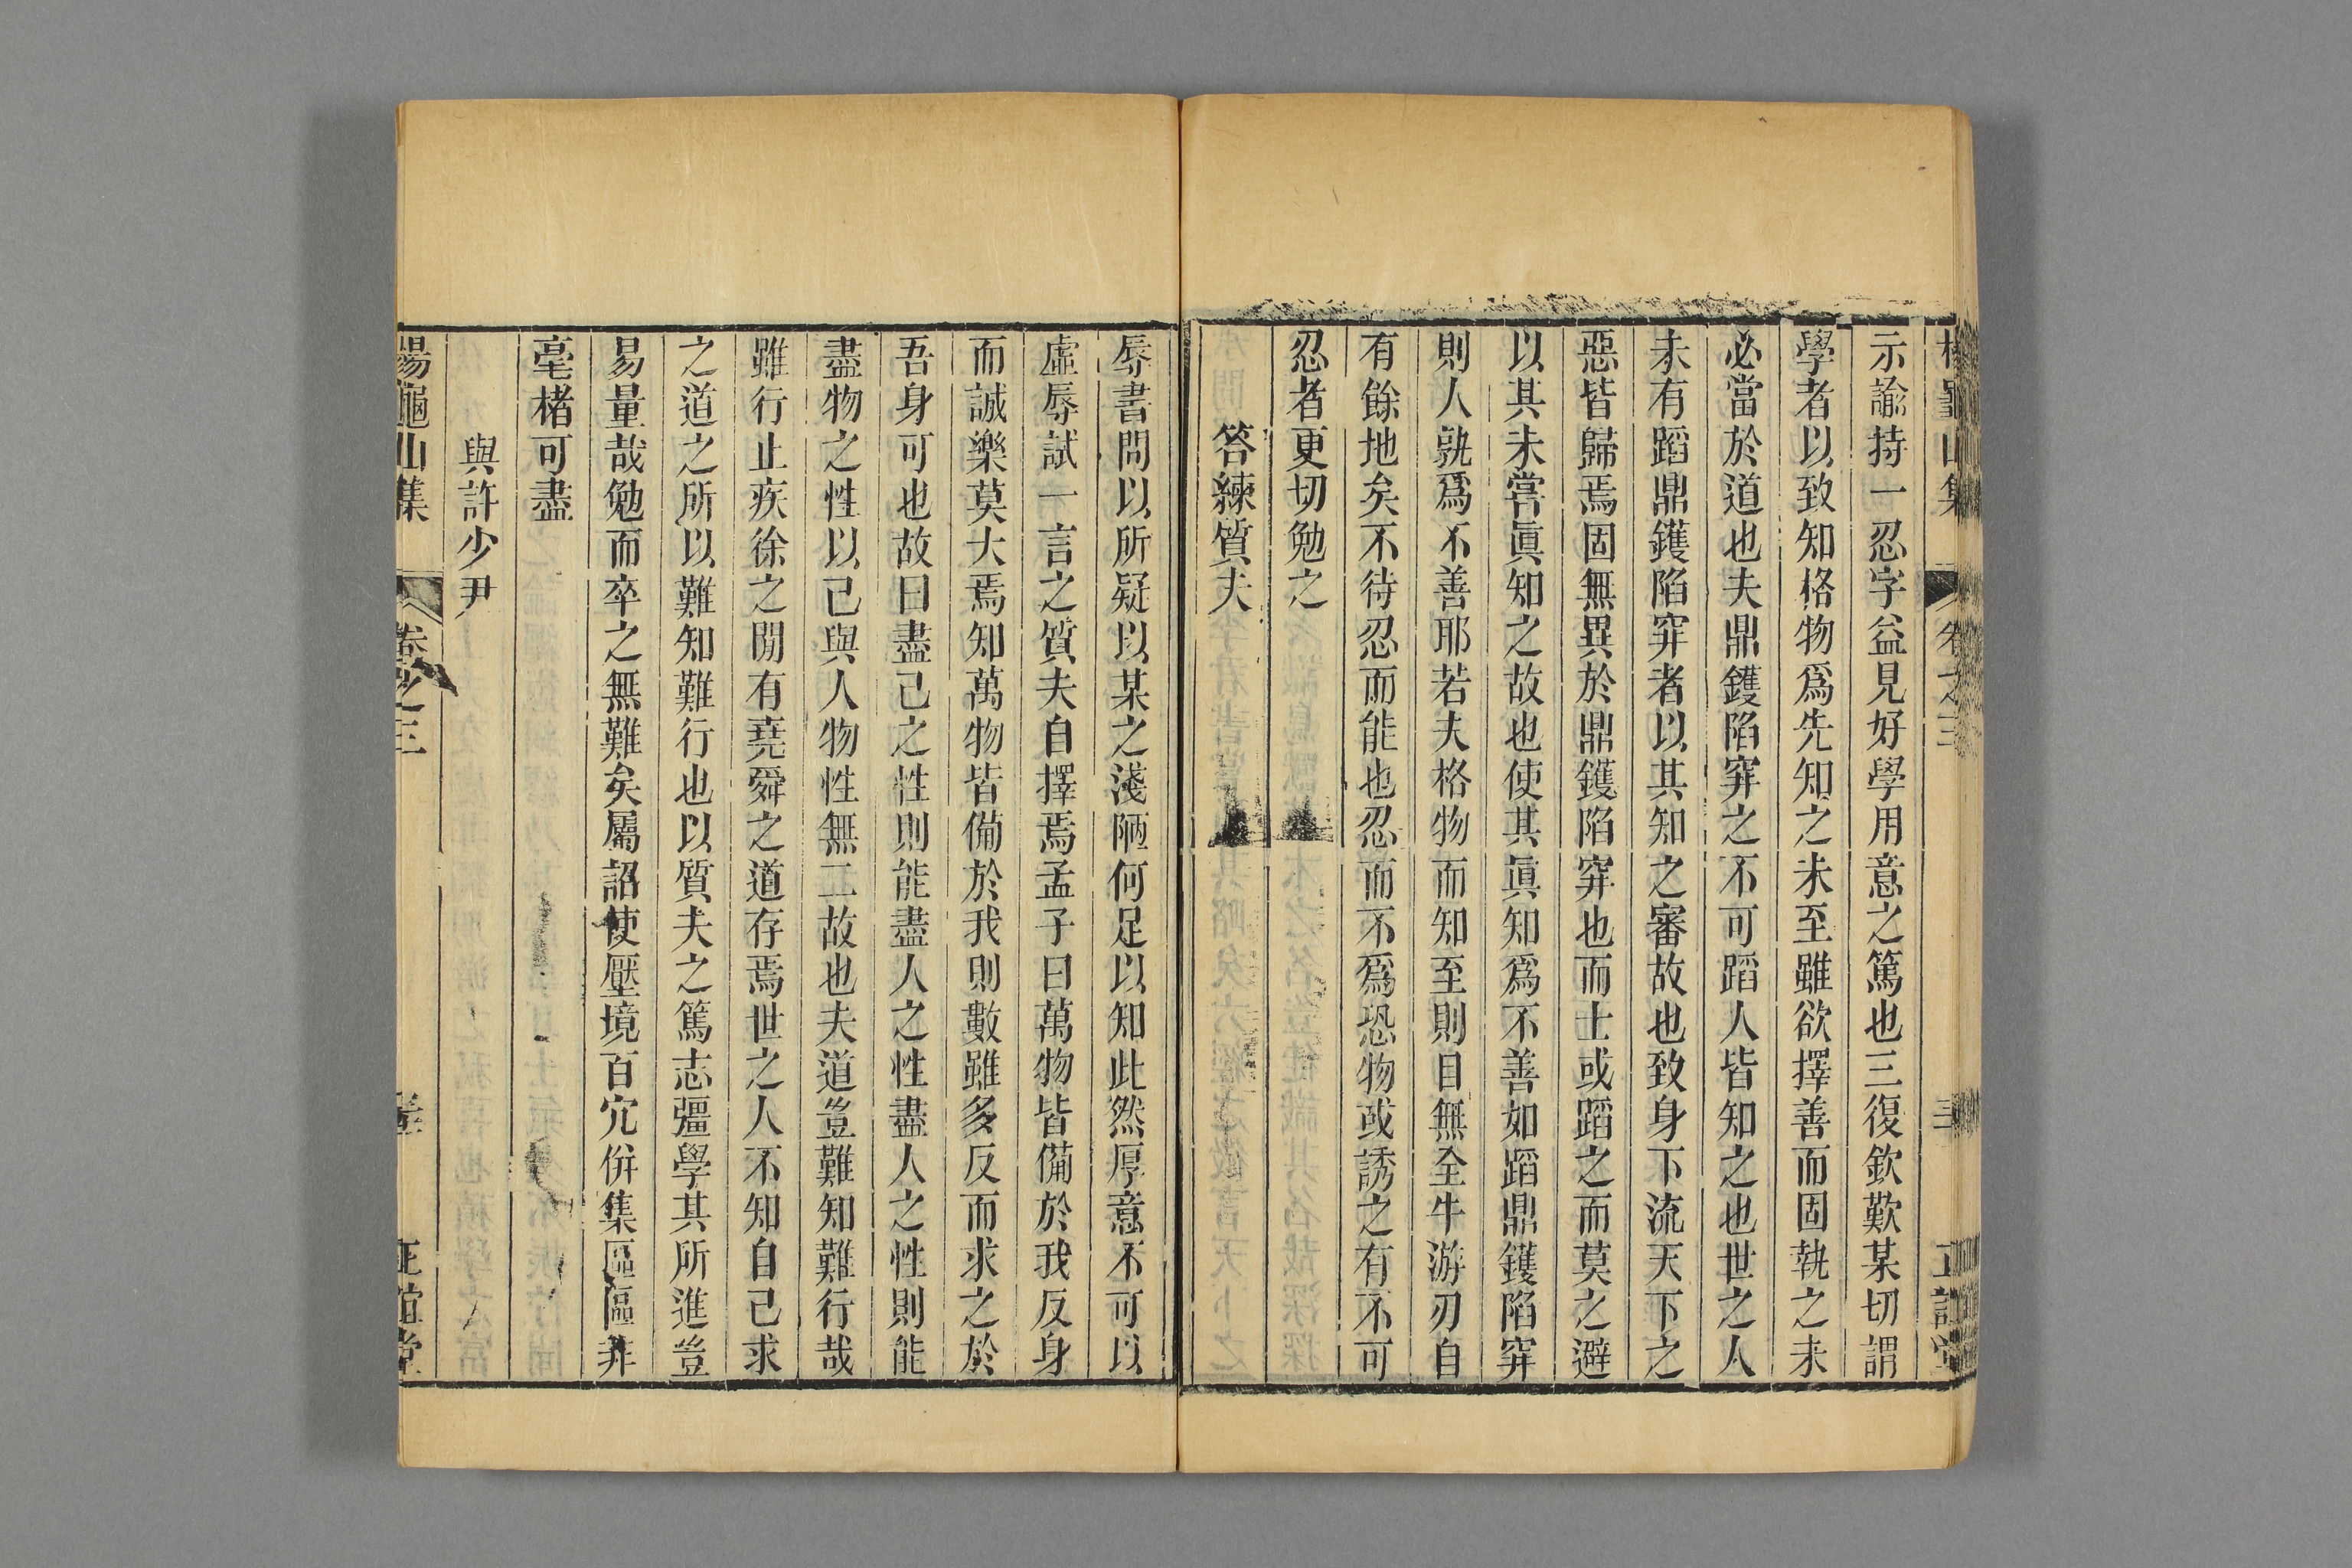 示諭持一忍字益見好學用意之篤也三復欽歎某切謂
學者以致知格物爲先知之未至雖欲擇善而固執之未
必當於道也夫鼎鑊陷穽之不可蹈人皆知之也世之人
未有蹈鼎鑊陷穽者以其知之審故也致身下流天下之
惡皆歸焉固無異於鼎鑊陷穽也而士或蹈之而莫之避
以其未嘗眞知之故也使其眞知爲不善如蹈鼎鑊陷穽
則人孰爲不善耶若夫格物而知至則目無全牛游刃自
有餘地矣不待忍而能也忍而不爲恐物或誘之有不可
忍者更切勉之
答練質夫
辱書問以所疑以某之淺陋何足以知此然厚意不可以
虛辱試一言之質夫自擇焉孟子曰萬物皆備於我反身
而誠樂莫大焉知萬物皆備於我則數雖多反而求之於
吾身可也故曰盡己之性則能盡人之性盡人之性則能
盡物之性以己與人物性無二故也夫道豈難知難行哉
雖行止疾徐之閒有堯舜之道存焉世之人不知自己求
之道之所以難知難行也以質夫之篤志彊學其所進豈
易量哉勉而卒之無難矣屬詔使壓境百宂併集區區非
毫楮可盡
與許少尹
楊龜山集 卷之三 正誼堂